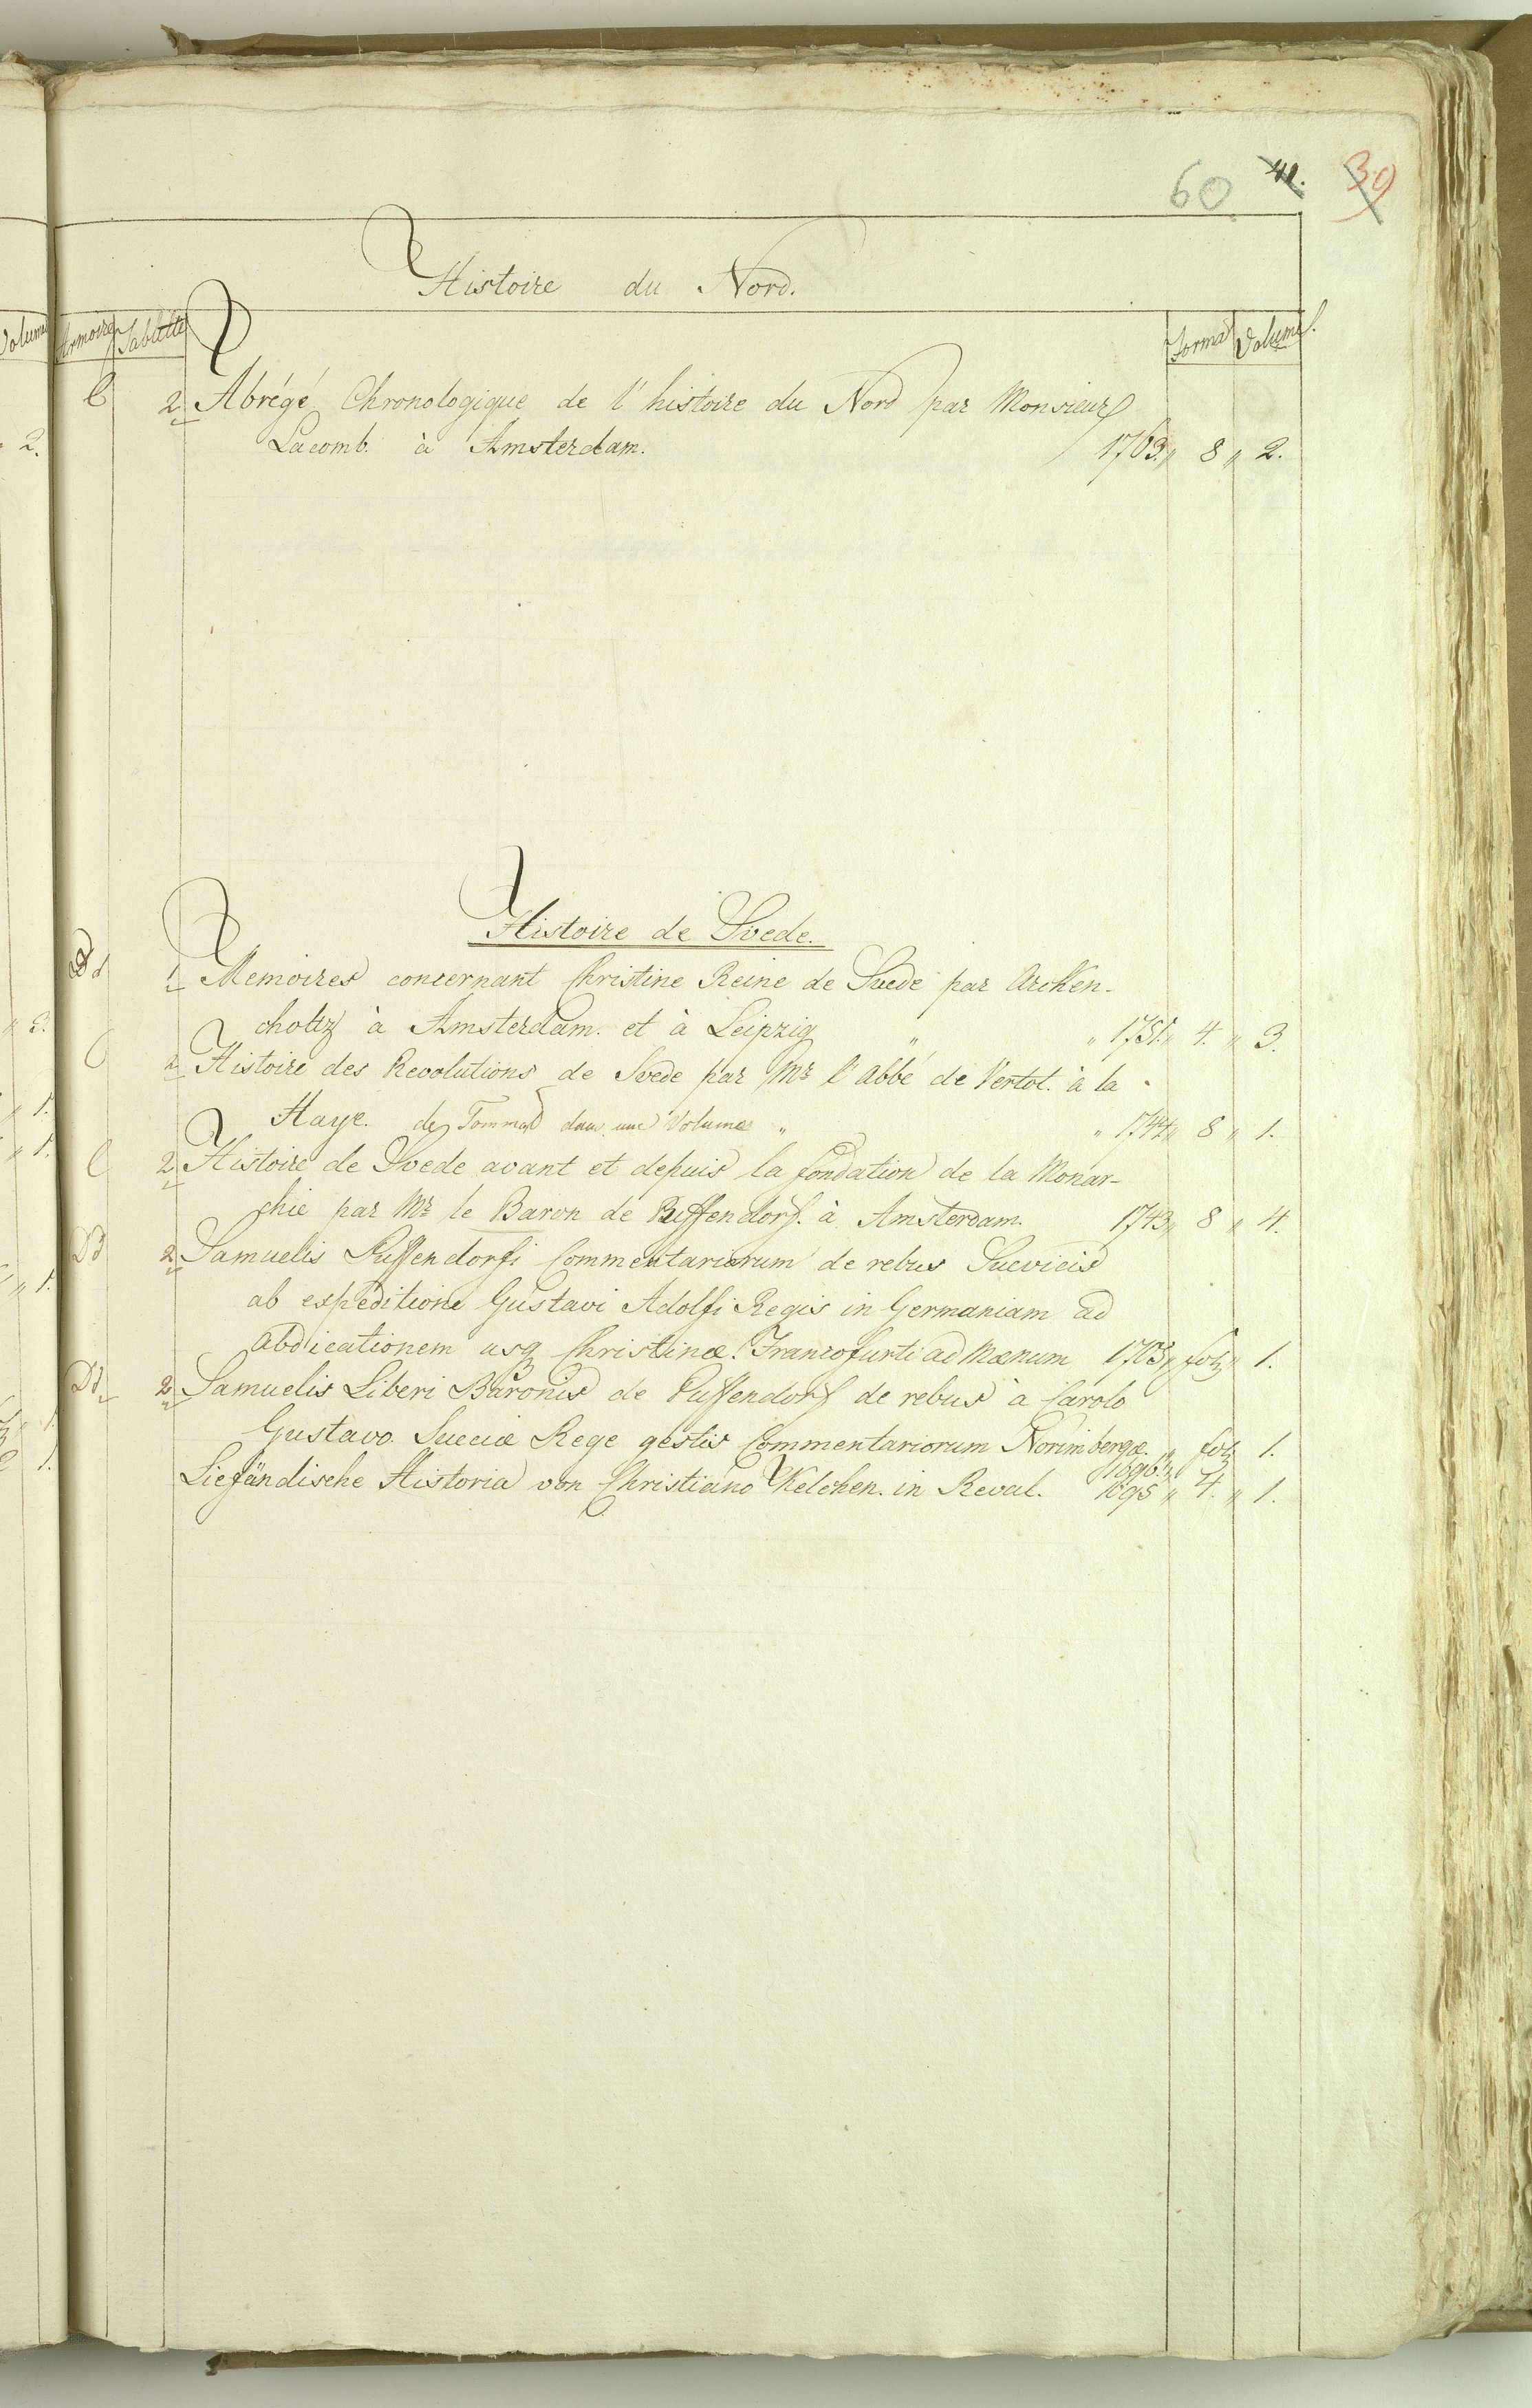 60 41. 39
Histoire du Nord.
Volume Armoire Tablette Format Volumes.
C 2 Abrégé Chronologique de l'histoire du Nord par Monsieur
2. Lacomb. à Amsterdam. 1763. „ 8 „ 2.
Histoire de Svede.
Dd 1 Memoires concernant Christine Reine de Svede par Archen-
choltz à Amsterdam. et à Leipzig „ „ 1751. „ 4. „ 3.
C 2 Histoire des Revolutions de Svede par Mr l'abbé de Vertot. à la
Haye. de Tommes dans une Volume „ „ 1744 „ 8 „ 1.
C 2 Histoire de Svede avant et depuis la fondation de la Monar-
chie par Mr le Baron de Puffendorf. à Amsterdam. 1743 „ 8 „ 4.
Dd 2 Samuelis Puffendorfi Commentariorum de rebus Suevicis
ab expeditione Gustavi Adolfi Regis in Germaniam ad
abdicationem usq Christinæ. Francofurti ad Mænum 1705 „ fol „ 1.
Dd. 2 Samuelis Liberi Baronis de Puffendorf de rebus à Carolo
Gustavo. Sueciæ Rege gestis Commentariorum Norimbergæ. 1696. „ fol 1.
Liefändische Historia von Christiano Kelchen. in Reval. 1695 „ 4. „ 1.